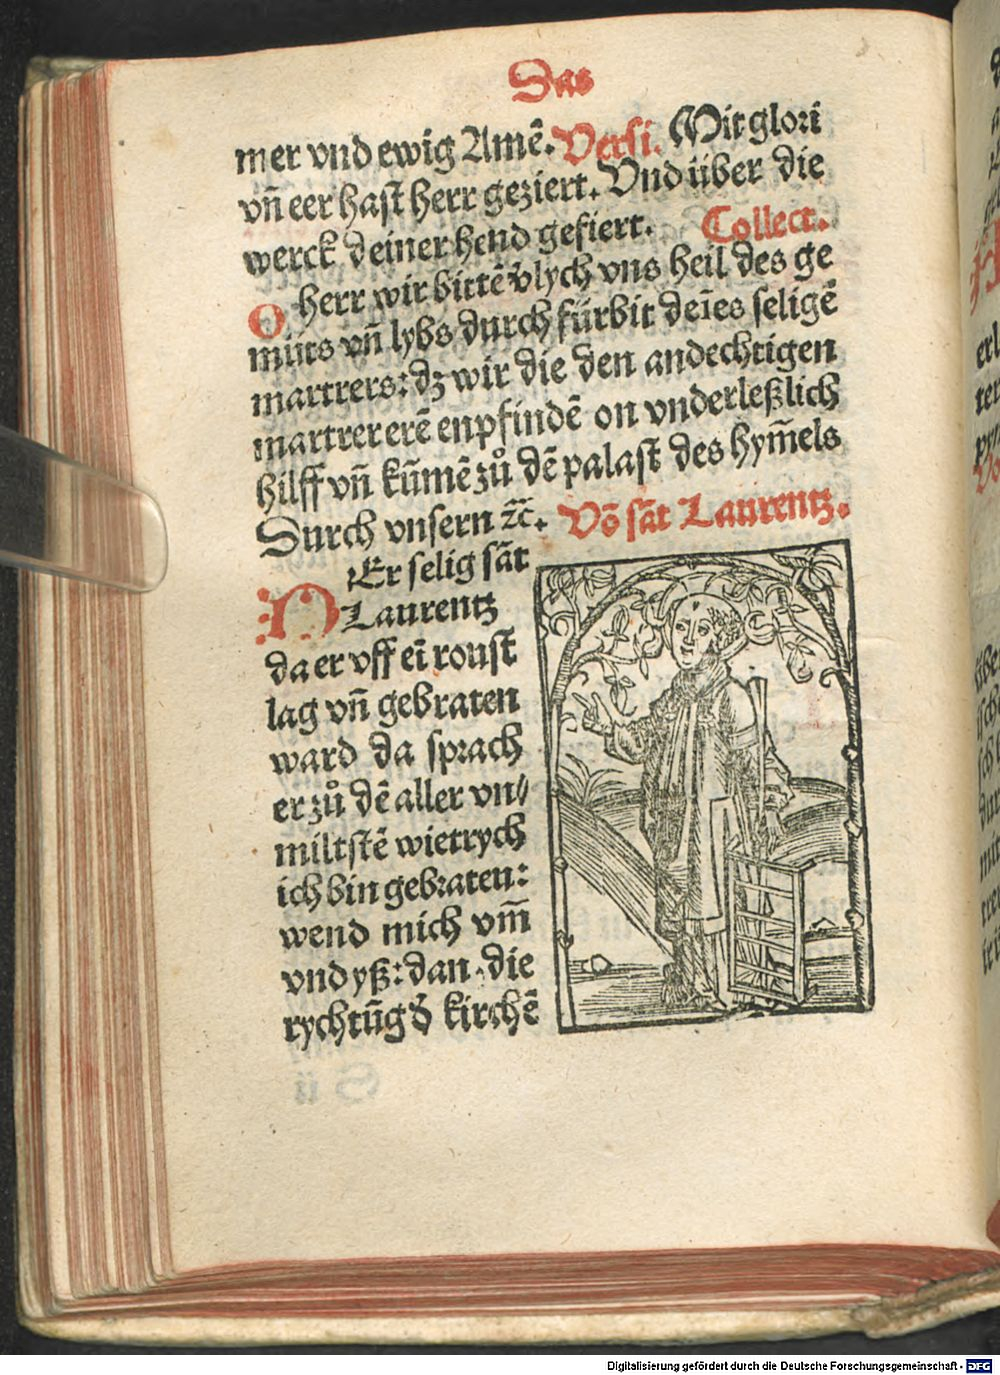 Das
mer vnd ewig Amē. Versi. Mit glori
vñ eer hast herr geziert. Vnd über die
werck deiner hend gesiert. Collect.
O herr wir bittē v̄lych vns heil des ge
müts vñ lybs durch fürbit deīes seligē
martrers: dz wir die den andechtigen
martrer erē enpfindē on vnderleßlich
hilff vñ kūmē zů dē palast des hym̄els
Durch vnsern ꝛc̄. Vō sāt Laurentz.
DEr selig sāt
Laurentz
da er vff eī roust
lag vñ gebraten
ward da sprach
er zů dē aller vn/
miltstē wietrych
ich bin gebraten:
wend mich vm̄
vnd yß: dan die
rychtūg d̄ kirchē
Digitalisierung gefördert durch die Deutsche Forschungsgemeinschaft - DFG